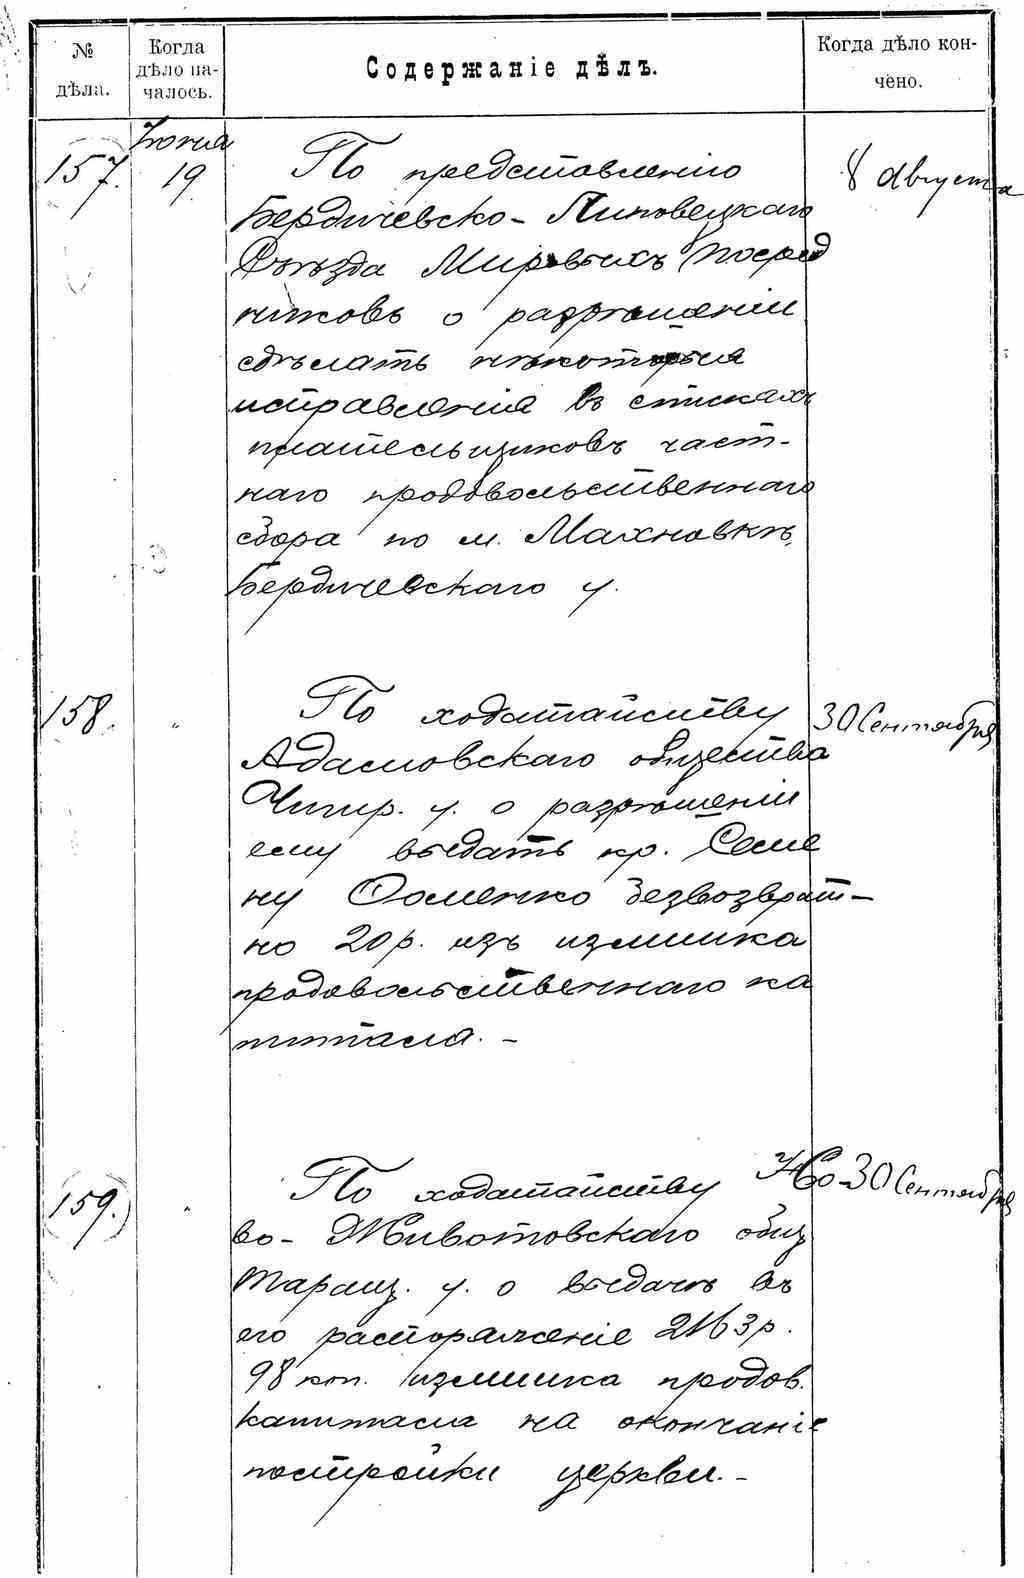 № дѣла.
Когда дѣло на-
чалось.
Содержаніе дѣлъ.
Когда дѣло кон-
чено.
157.
Іюня
19
По представленію
Бердичевско-Липовецкаго
Съѣзда Мировыхъ Посред
никовъ о разрѣшеніи
сдѣлать нѣкоторыя
исправленія въ спискахъ
плательщиковъ част-
наго продовольственнаго
сбора по м. Махновкѣ,
Бердичевскаго у.
8 Августа
158.
"
По ходатайству
Адамовскаго общества
Чигир. у. о разрѣшеніи
ему выдать кр. Семе
ну Фоменко безвозврат-
но 20 р. изъ излишка
продовольственнаго ка
питала. -
30 Сентября
159.
"
По ходатайству Но-
во-Животовскаго общ
Таращ. у. о выдачѣ въ
его распоряженіе 2163 р.
98 коп. излишка продов.
капитала на окончаніе
постройки церкви. -
30 Сентября